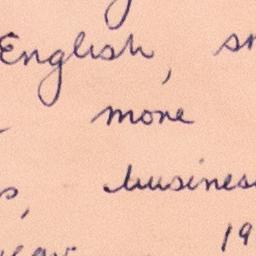 English, sm
more
s, busines
year 19